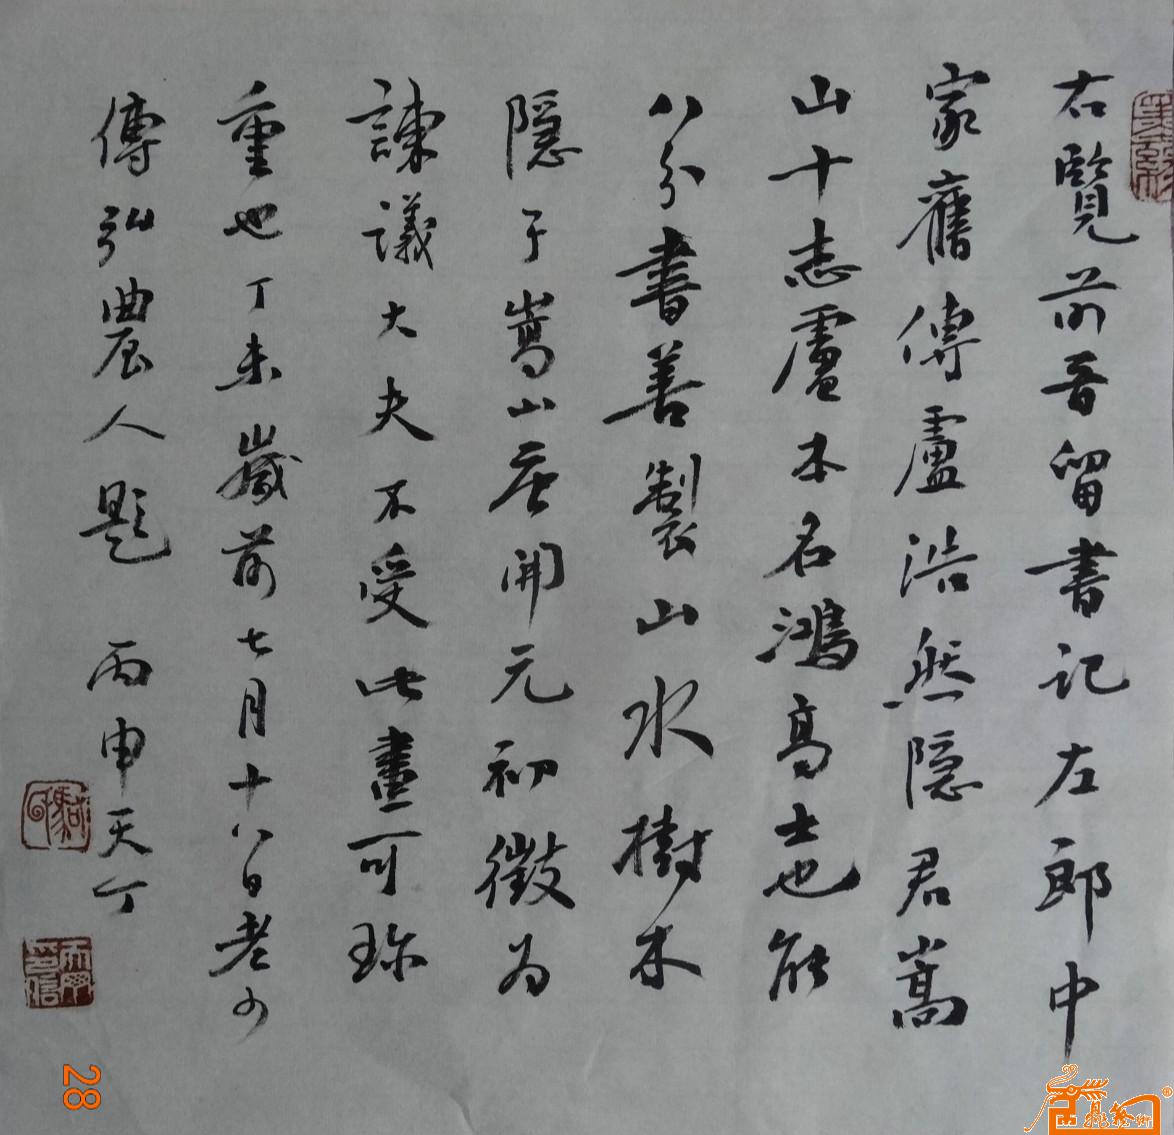 右覽前晉留書記左郎中
家舊傳盧浩然隱君嵩
山十志盧本名鴻高士也能
八分書善製山水樹木
隱于嵩山唐開元初徵为
諫議大夫不受此畫可珎
重也丁未歲前七月十八日老少
傅弘農人題 丙申天丁
28